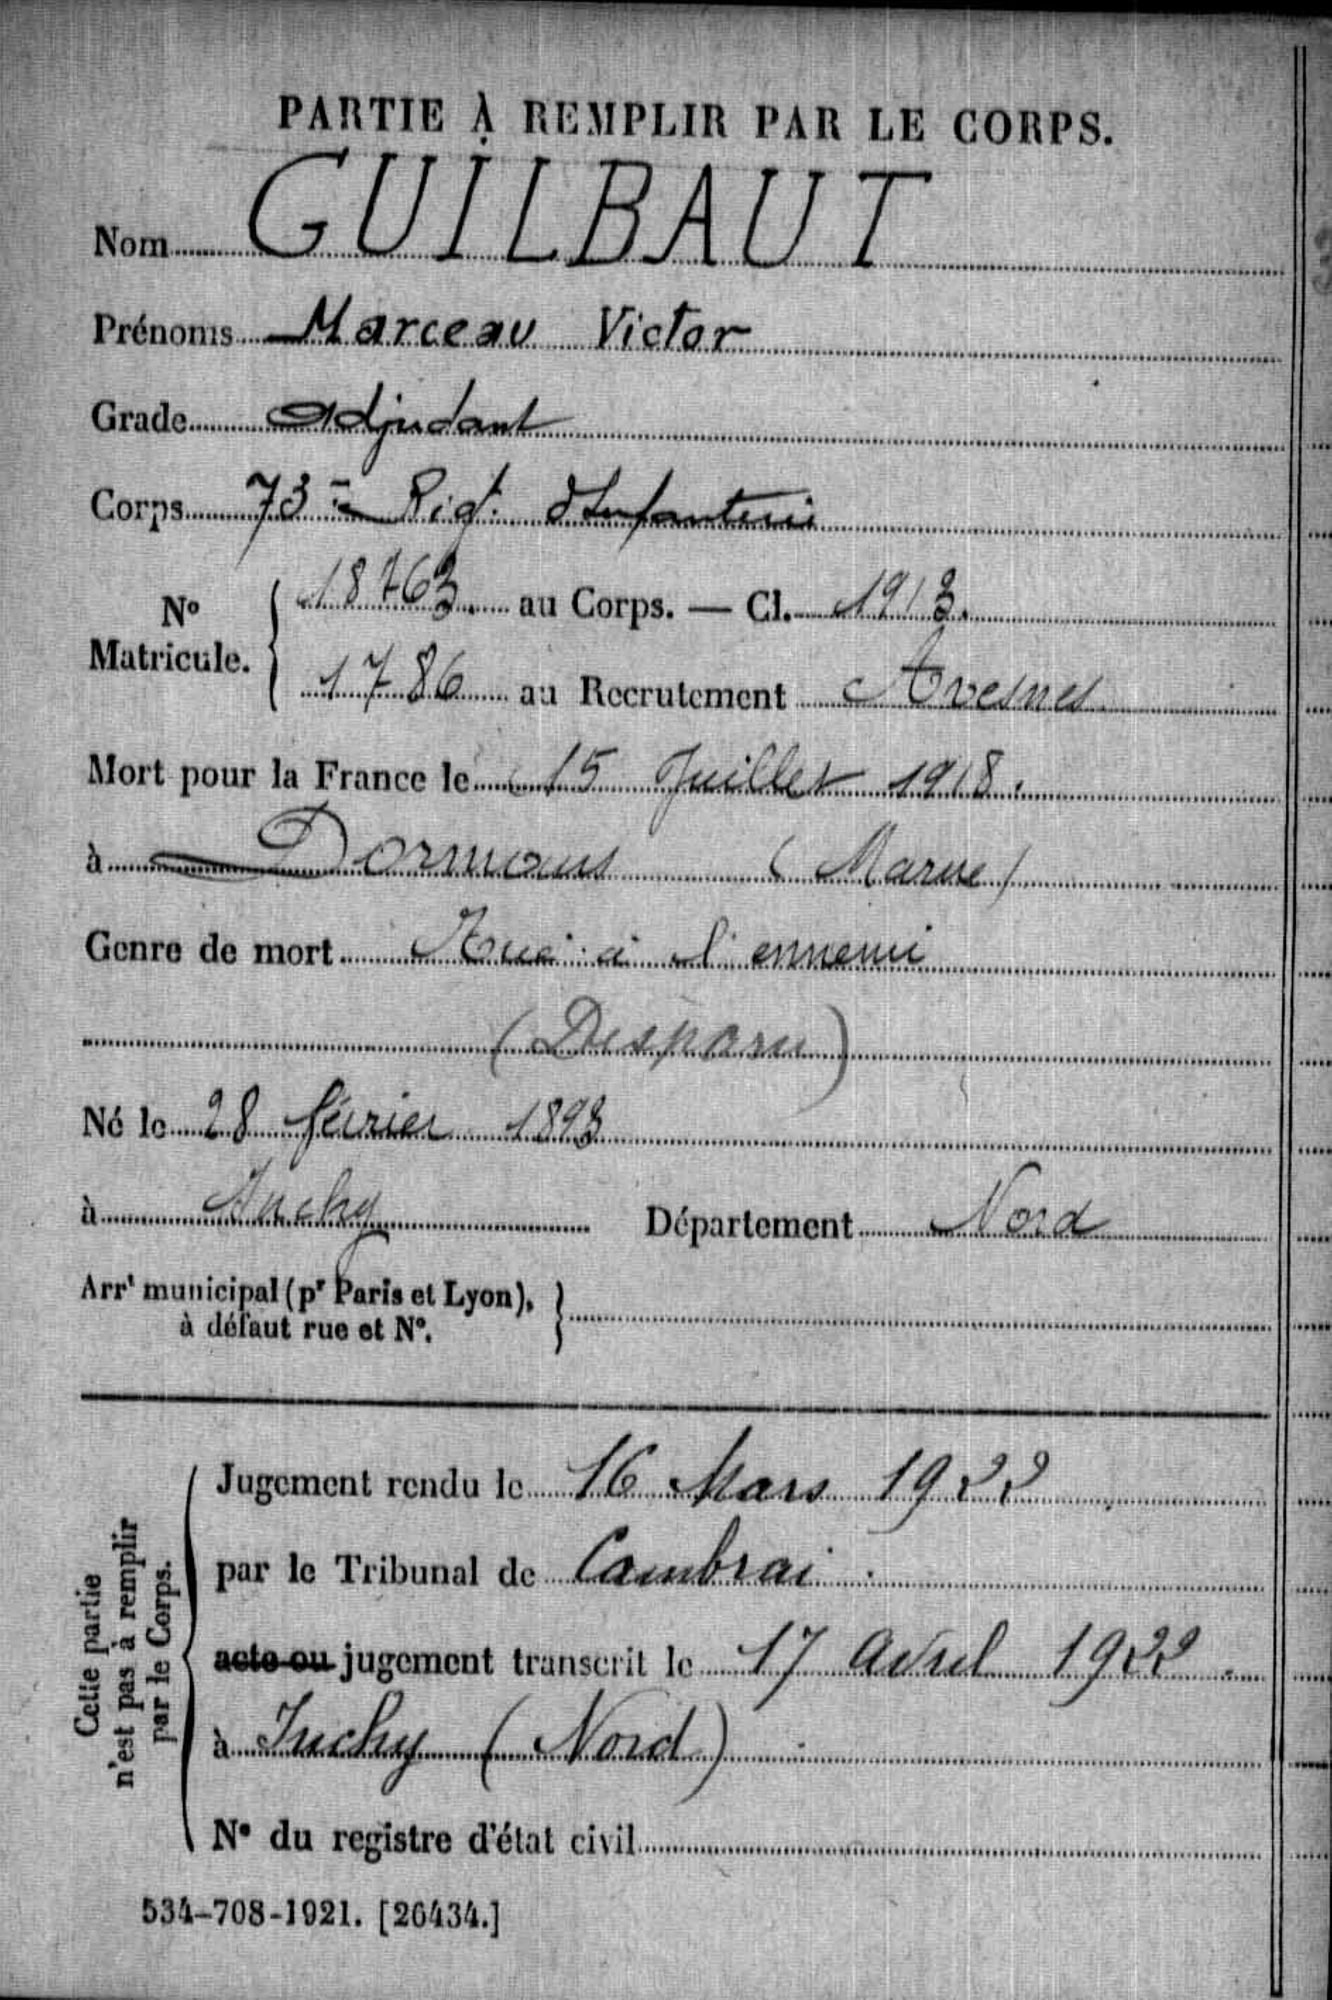 PARTIE À REMPLIR PAR LE CORPS.
Nom GUILBAUT
Prénoms Marceau Victor
Grade Adjudant
Corps 73e Rigt. d'Infanterie
No Matricule. { 18763. au Corps. — Cl. 1913.
1786 au Recrutement Avesnes.
Mort pour la France le 15 Juillet 1918.
à Dormans (Marne)
Genre de mort Tué à l'ennemi
(Disparu)
Né le 28 février 1893
à Inchy Département Nord
Arrt municipal (pr Paris et Lyon), }
à défaut rue et No.
Cette partie
n'est pas à remplir
par le Corps.
Jugement rendu le 16 Mars 1922
par le Tribunal de Cambrai.
acte ou jugement transcrit le 17 Avril 1922.
à Inchy (Nord)
No du registre d'état civil
534-708-1921. [26434.]